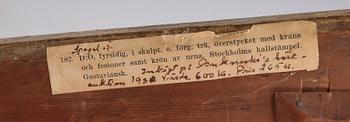 Spegel
182. D:O, fyrsidig, i skulpt. o. förg. trä, överstycket med krans
och festoner samt krön av urna. Stockholms hallstämpel.
Gustaviansk. Inköpt på Bukowski's
auktion 1932 Värde 600 kr. Pris 265 kr.